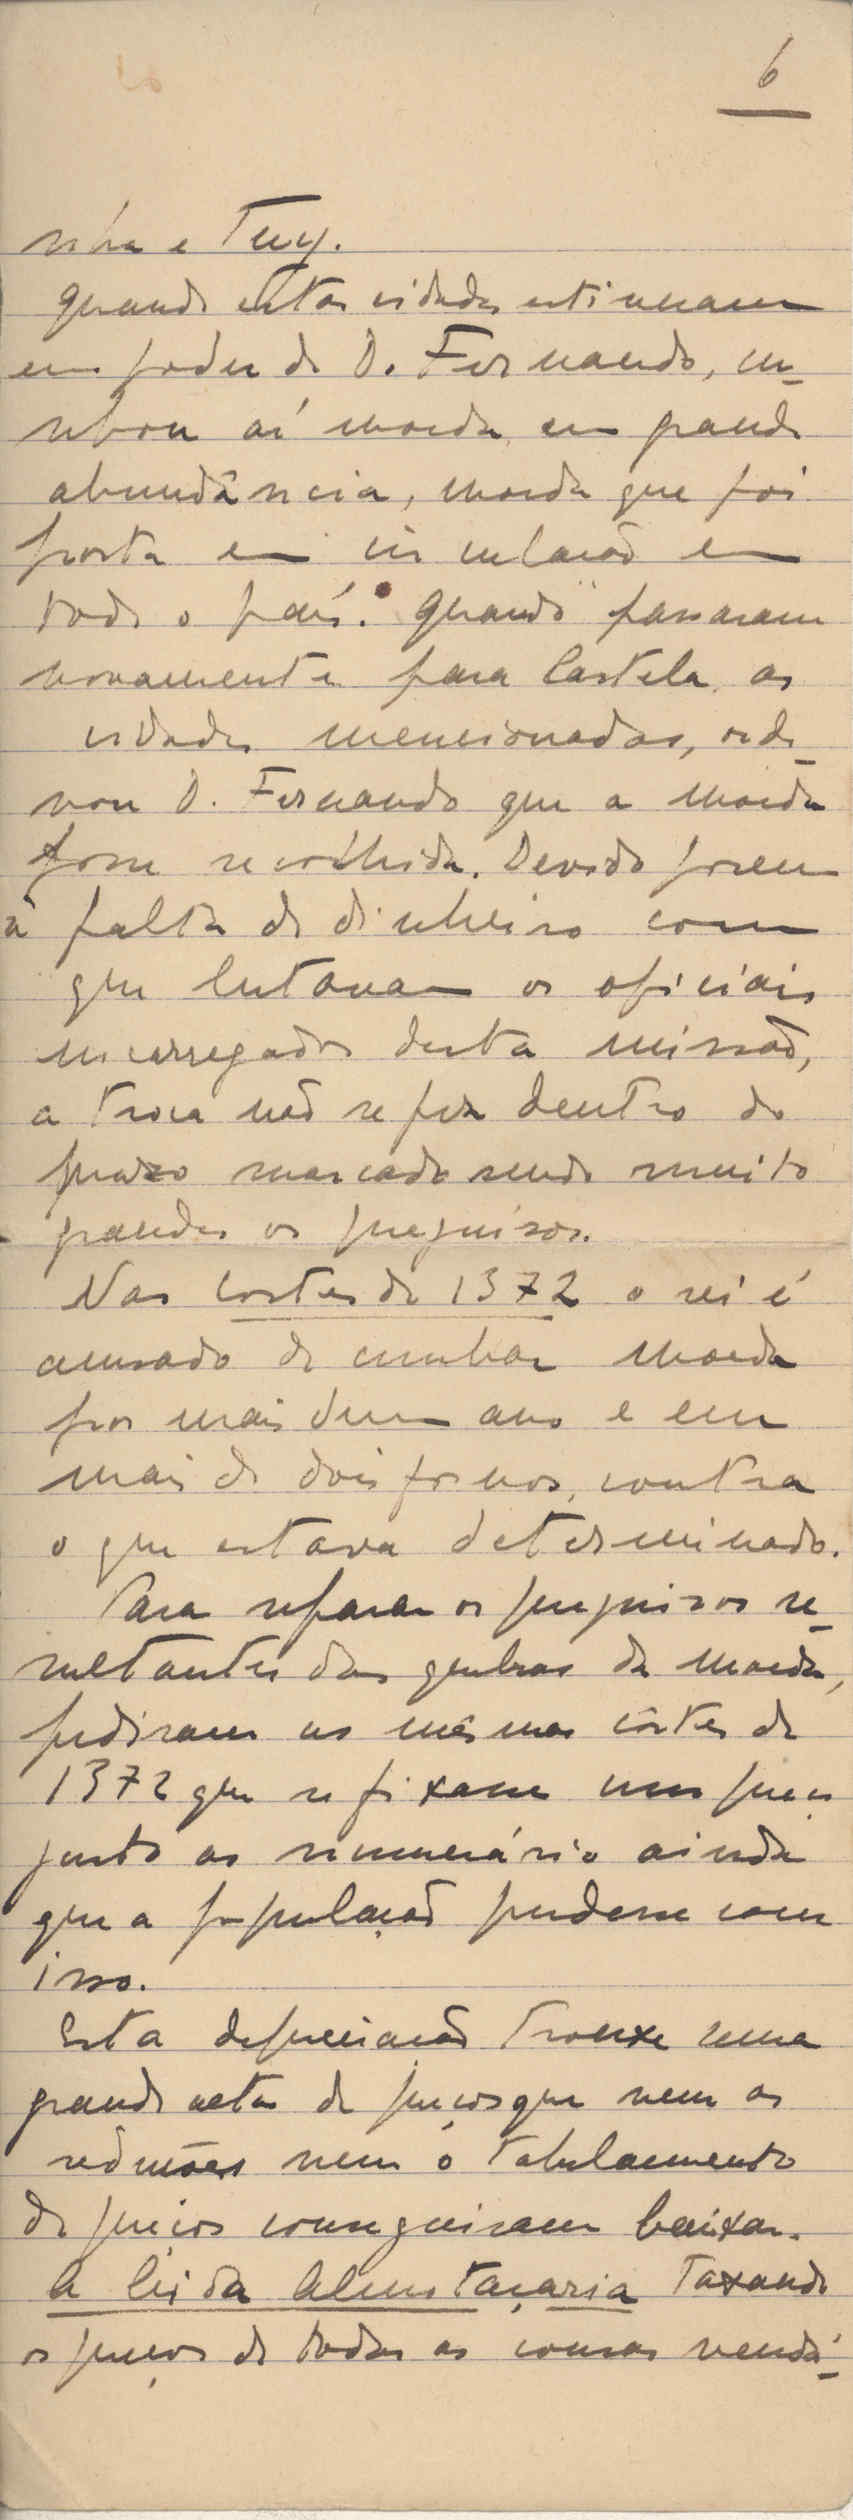 6
nha e Tuy.
Quando estas cidades estiveram
em poder de D. Fernando, cu-
nhou aí moeda em grande
abundância, moeda que foi
posta em circulação em
todo o país. Quando passaram
novamente para Castela as
cidades mencionadas, orde-
nou D. Fernando que a moeda
fosse recolhida. Devido porem
à falta de dinheiro com
que lutavam os oficiais
encarregados desta missão,
a troca não se fez dentro do
prazo marcado sendo muito
grandes os prejuísos.
Nas Cortes de 1372 o rei é
acusado de cunhar moeda
por mais dum ano e em
mais de dois fornos, contra
o que estava determinado.
Para reparar os prejuisos re-
sultantes das quebras da moeda,
pediram as mesmas côrtes de
1372 que se fixasse um preço
justo ao numerário ainda
que a população perdesse com
isso.
Esta depreciação trouxe uma
grande alta de preços que nem as
reduções nem o tabelamento
de preços conseguiram baixar.
A lei da Almotaçaria taxando
os preços de todas as cousas vendá-